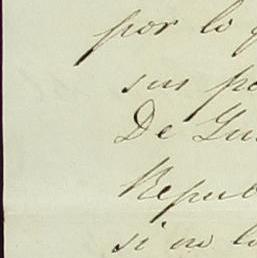 por lo q
sus pe
De Gu
Repub
si no lo